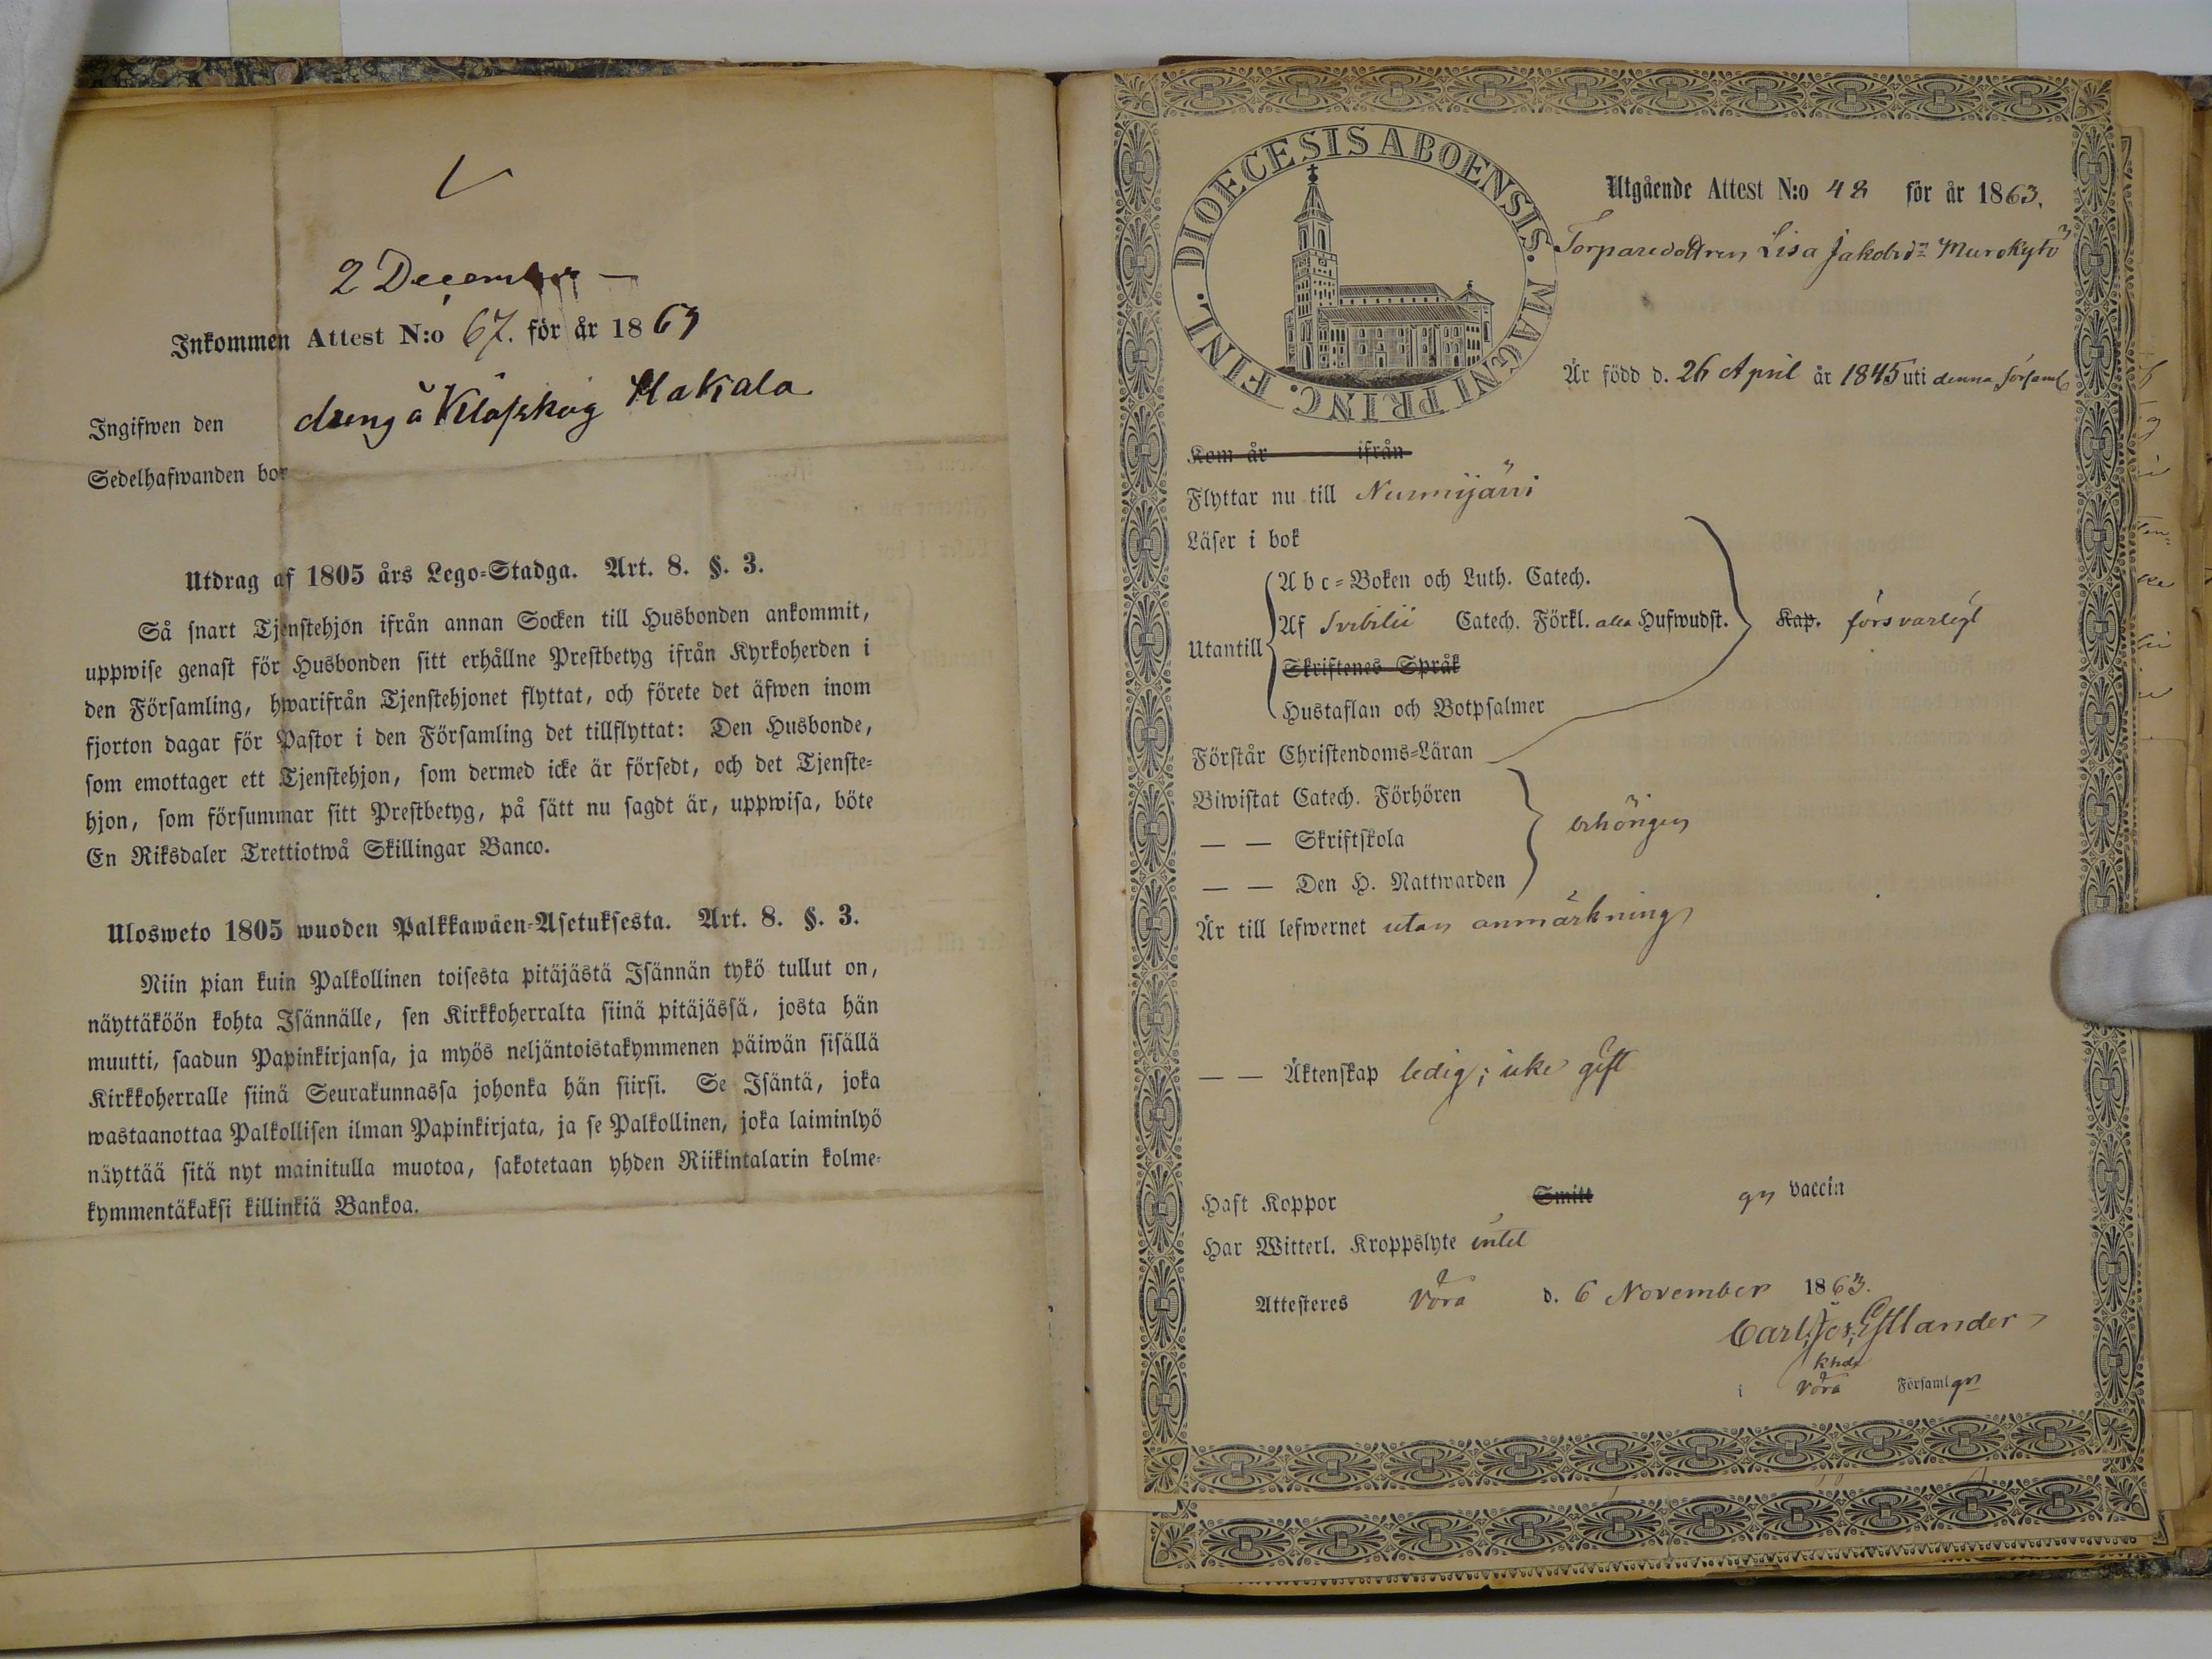 2 December
Inkommen Attest N:o 67. för år 1863
Ingifwen den
dräng å Kilafskog Hakala
Sedelhafwanden bor
Utdrag af 1805 års Lego=Stadga. Art. 8. §. 3.
Så snart Tjenstehjon ifrån annan Socken till Husbonden ankommit,
uppwise genast för Husbonden sitt erhållne Prestbetyg ifrån Kyrkoherden i
den Församling, hwarifrån Tjenstehjonet flyttat, och förete det äfwen inom
fjorton dagar för Pastor i den Församling det tillflyttat: Den Husbonde,
som emottager ett Tjenstehjon, som dermed icke är försedt, och det Tjenste=
hjon, som försummar sitt Prestbetyg, på sätt nu sagdt är, uppwisa, böte
En Riksdaler Trettiotwå Skillingar Banco.
Ulosweto 1805 wuoden Palkkawäen=Asetuksesta. Art. 8. §. 3.
Niin pian kuin Palkollinen toisesta pitäjästä Isännän tykö tullut on,
näyttäköön kohta Isännälle, sen Kirkkoherralta siinä pitäjässä, josta hän
muutti, saadun Papinkirjansa, ja myös neljäntoistakymmenen päiwän sisällä
Kirkkoherralle siinä Seurakunnassa johonka hän siirsi. Se Isäntä, joka
wastaanottaa Palkollisen ilman Papinkirjata, ja se Palkollinen, joka laiminlyö
näyttää sitä nyt mainitulla muotoa, sakotetaan yhden Riikintalarin kolme=
kymmentäkaksi killinkiä Bankoa.
DIOECESIS ABOENSIS. MAGNI PRINC. FINL.
Utgående Attest N:o 48 för år 1863.
Torparedottren Lisa Jakobsd:r Murokytö
Är född d. 26 April år 1845 uti denna församl.
Kom år ifrån
Flyttar nu till Nurmijärvi
Läser i bok
Abc=Boken och Luth. Catech.
Utantill Af Svebilii Catech. Förkl. alla Hufwudst. Kap. försvarligt
Skriftenes Språk
Hustaflan och Botpsalmer
Förstår Christendoms=Läran
Biwistat Catech. Förhören
— — Skriftskola behörigen
— — Den H. Nattwarden
Är till lefwernet utan anmärkning
— — Äktenskap ledig; icke gift
Haft Koppor Smitt gn vaccin
Har Witterl. Kroppslyte intet
Attesteres Vörå d. 6 November 1863.
Carl Jos. Estlander
khde
i Vörå Församlgn